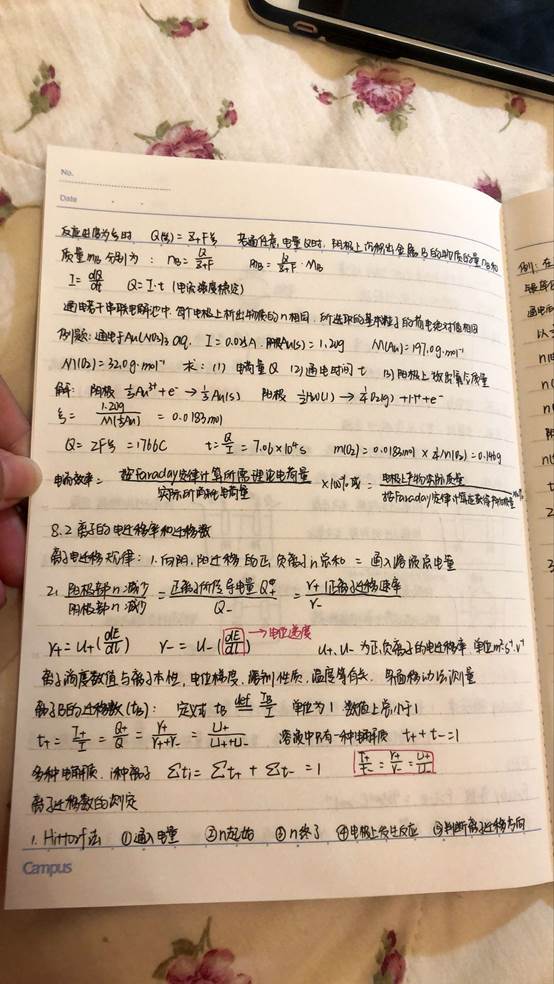 No.
Date
反应进度为ξ时 Q(ξ) = Z+Fξ 若通任意电量Q时, 阴极上沉积出金属B的物质的量nB和
质量mB分别为: nB = Q/Z+F mB = Q/Z+F · MB
I = dQ/dt Q = I·t (电流强度稳定)
通电若干串联电解池中, 每个电极上析出物质的n相同, 所选取的基本粒子的荷电绝对值相同
例题: 通电于Au(NO3)3 aq, I = 0.025A, 阴极Au(s) = 1.20g M(Au) = 197.0g·mol⁻¹
M(O2) = 32.0g·mol⁻¹ 求: (1) 电荷量Q (2) 通电时间t (3) 阳极上放出氧气质量
解: 阴极 1/3Au³⁺ + e⁻ → 1/3Au(s) 阳极 1/2H2O(l) → 1/4O2(g) + H⁺ + e⁻
ξ = 1.20g/M(1/3Au) = 0.0183mol
Q = ZFξ = 1766C t = Q/I = 7.06×10⁴s m(O2) = 0.0183mol × 1/4M(O2) = 0.146g
电流效率 = 按Faraday定律计算所需理论电荷量/实际所消耗电荷量 ×100% 或 = 电极上产物实际质量/按Faraday定律计算应获得产物质量 ×100%
8.2 离子的电迁移率和迁移数
离子电迁移规律: 1. 向阴, 阳迁移的正, 负离子n总和 = 通入溶液总电量
2. 阳极部n减少/阴极部n减少 = 正离子所传导电量Q+/Q- = r+ 正离子迁移速率/r-
r+ = U+(dE/dl) r- = U-(dE/dl) → 电位梯度 U+, U- 为正负离子的电迁移率 单位m²·s⁻¹·v⁻¹
离子淌度数值与离子本性, 电位梯度, 溶剂性质, 温度等有关. 界面移动法测量
离子B的迁移数(tB): 定义式 tB def IB/I 单位为1 数值上总小于1
t+ = I+/I = Q+/Q = r+/r++r- = U+/U++U- 溶液中只有一种电解质 t+ + t- = 1
多种电解质, i种离子 Σti = Σt+ + Σt- = 1 I+/I- = r+/r- = U+/U-
离子迁移数的测定
1. Hittorf法 ①通入电量 ②n起始 ③n终了 ④电极上发生反应 ⑤判断离子迁移方向
Campus
例: 在
通电后